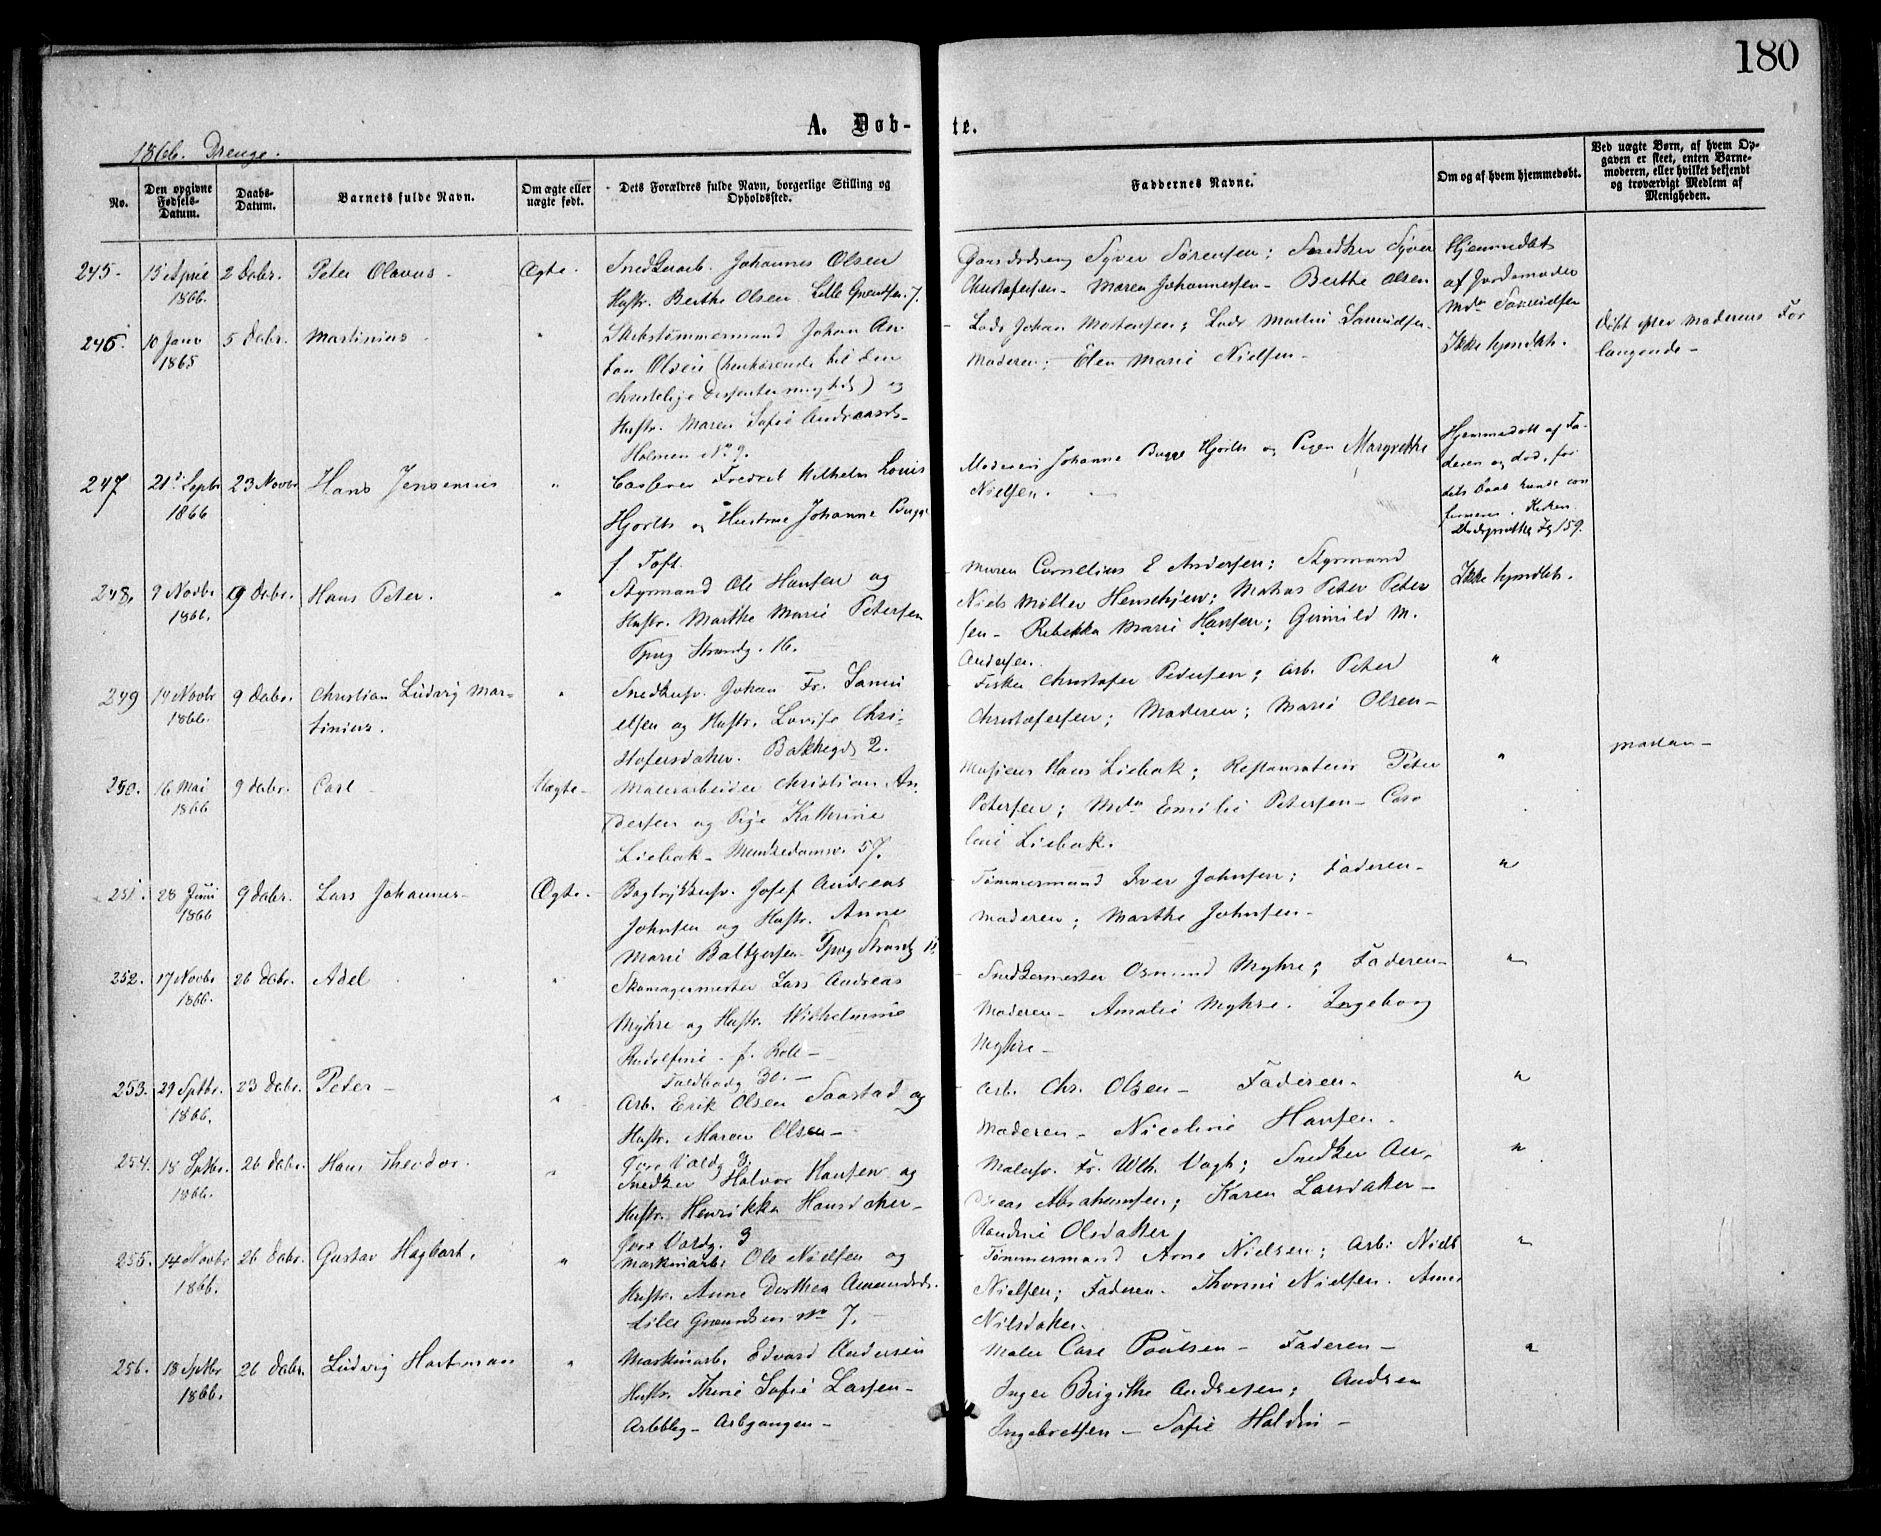 180
A. Døb-te.
1866. Drenge.
No.
Den opgivne Fødsels-Datum.
Daabs-Datum.
Barnets fulde Navn.
Om ægte eller uægte født.
Dets Forældres fulde Navn, borgerlige Stilling og Opholdssted.
Faddernes Navne.
Om og af hvem hjemmedøbt.
Ved uægte Børn, af hvem Op-
gaven er skeet, enten Barne-
moderen, eller hvilket bekjendt
og troværdigt Medlem af
Menigheden.
245. 15 April 1866. 2 Debr. Peter Olavus. Ægte.
Snedkerarb. Johannes Olsen
Hustr. Berthe Olsen. Lille Grændsen. 7.
Gaardsdreng Syver Sørensen; Snedker Syver
Christofersen - Maren Johannessen - Berthe Olsen
Hjemmedbt
af Jordemoder
Mdm
246. 10 Janr 1865 5 Debr. Martinius. "
Skibstømmermand Johan An-
ton Olsen (henhørende til den
christelige Dissentermenighed) og
Hustr. Maren Sofie Andreasd.
Holmen No 9.
Lods Johan Mortensen; Lods Martin
Moderen; Elen Marie Nielsen -
Ikke hjmdbt.
Døbt efter Moderens For
langende -
247 21d Septbr 1866 23 Novbr Hans Jensenius "
Fredrik Wilhelm Louis
Hjorth og Hustrue Johanne Bugge
f. Toft
Moderen Johanne Bugge Hjorth og Pigen Margrethe
Nielsen.
Hjemmedøbt af Fa-
deren og død, før
dets Daab kunde con
firmeres.
159.
248. 9 Novbr 1866. 9 Debr. Hans Peter. "
Styrmand Ole Hansen og
Hustr. Marthe Marie Petersen
Tjuvh Strandg. 16.
Maren Cornelius E Andersen; Styrmand
Niels Møller Henschien; Matros Peter Peter
sen - Rebekka Marie Hansen; Gunnild M.
Andersen.
Ikke hjmdbt.
249 14 Novbr 1866. 9 Debr. Christian Ludvig Mar-
tinius. "
Snedkersv. Johan Fr. Samu
elsen og Hustr. Lovise Chri-
stofersdatter. Bakkegd 2.
Fisker Christofer Pedersen; Arb. Peter
Christofersen; Moderen; Marie Olsen -
"
250. 16 Mai 1866 9 Debr. Carl - Uægte -
Malerarbeider Christian An-
dersen og Pige Kathrine
Liebak - Munkedamsv. 57.
Musicus Hans Liebak; Restauratør Peter
Petersen; Mdm Emilie Petersen - Caro
line Liebak.
"
Moderen -
251. 28 Juni 1866 9 Debr. Lars Johannes - Ægte.
Josef Andreas
Johnsen og Hustr. Anne
Marie Baltzersen Tjuvh Strandg
Tømmermand Iver Johnsen; Faderen -
Moderen; Marthe Johnsen -
"
252. 17 Novbr 1866. 26 Debr. Adel "
Skomagermester Lars Andreas
Myhre og Hustr. Wilhelmine
Rudolfine - f. Roll -
30. -
Snedkermester Osmund Myhre; Faderen -
Moderen - Amalie Myhre. Ingeborg
Myhre -
"
253. 29 Septbr. 1866. 23 Debr. Peter - "
Arb. Erik Olsen Saastad og
Hustr. Maren Olsen -
3.
Arb. Chr. Olsen - Faderen -
Moderen - Nicoline Hansen.
"
254. 18 Septbr. 1866. 26 Debr. Hans Theodor. "
Snedker Halvor Hansen og
Hustr. Henrikka Hansdatter -
3
Malersv. Fr. Wlh. Vagt; Snedker An-
dreas Abrahamsen; Karen Larsdatter -
Randine Olsdatter
"
255. 14 Novbr 1866. 26 Debr. Gustav Hagbart. "
Maskinarb. Ole Nielsen og
Hustr. Anne Dorthea Amundsd.
Lille Grændsen No 7. -
Tømmermand Arne Nielsen; Arb: Niels
Nielsen; Faderen. Thorine Nielsen. Anne
Nilsdatter.
"
256. 18 Septbr 1866. 26 Debr. Ludvig Hartman "
Maskinarb. Edvard Andersen
Hustr. Thine Sofie Larsen -
Arbblg - Arbgangen -
Maler Carl Poulsen - Faderen -
Inger Birgithe Andresen; Andrea
Ingebretsen - Sofie Haldin -
"